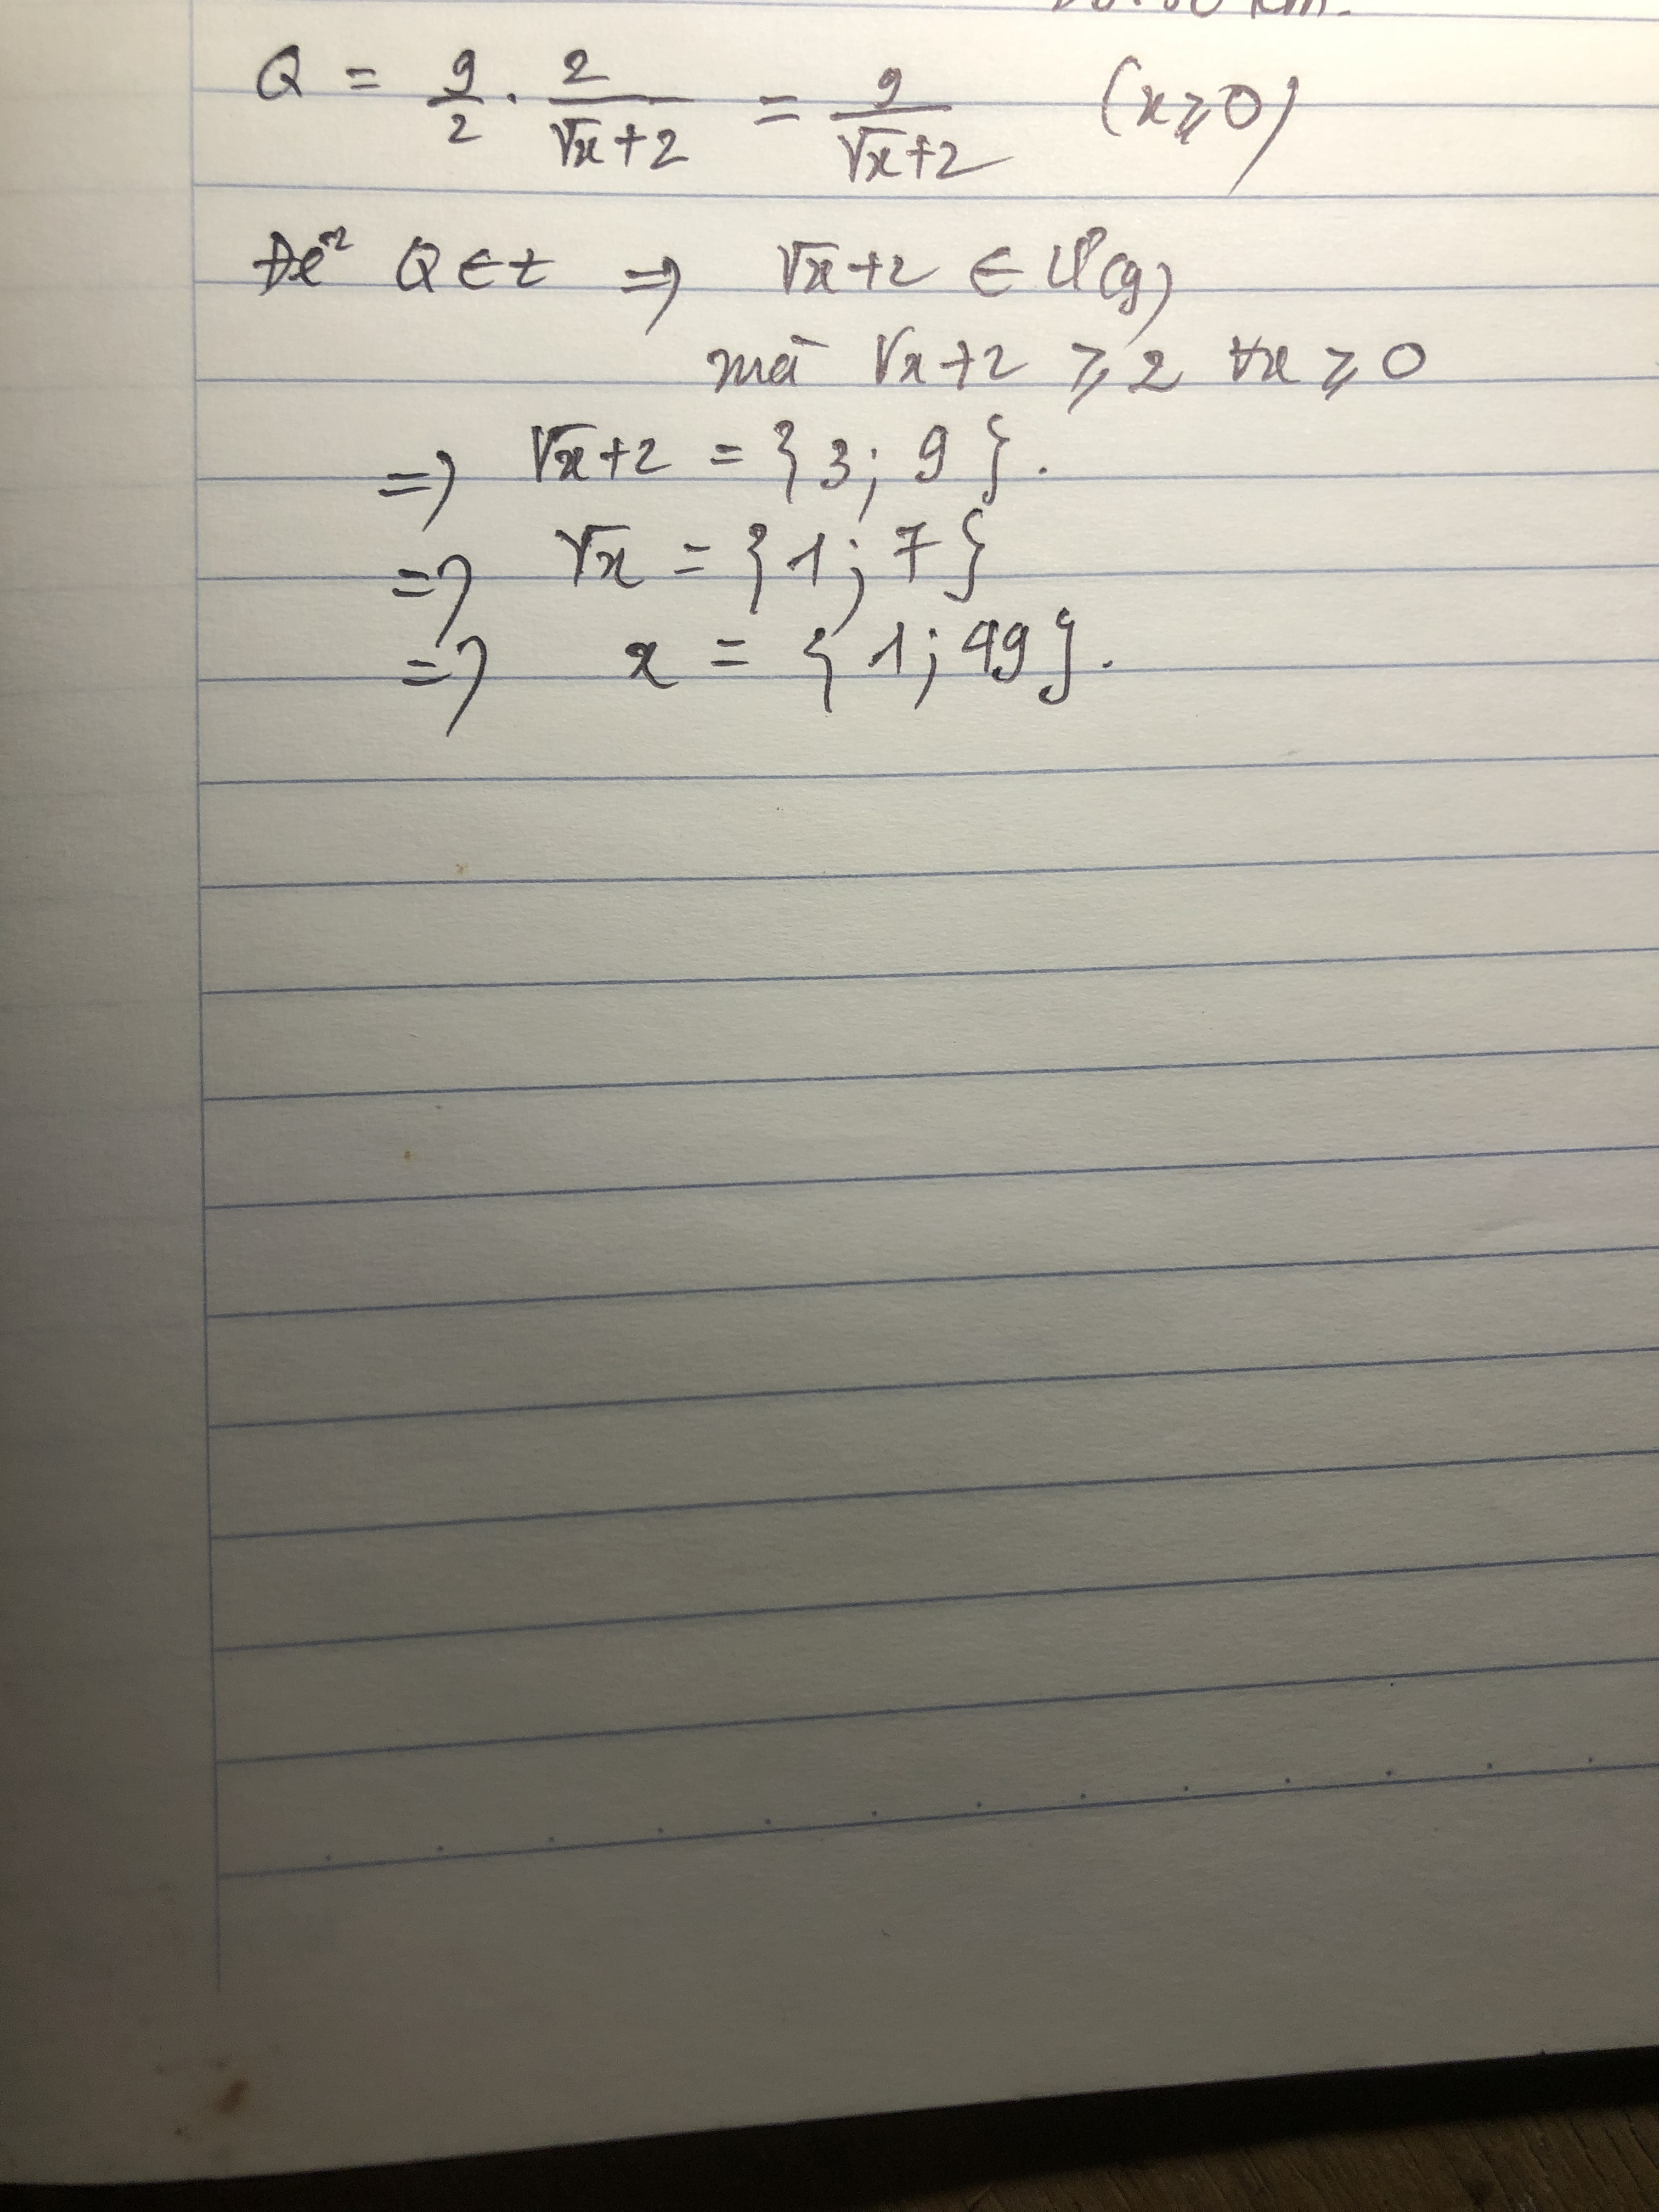 Q = 9/2 . 2/(√x+2) = 9/(√x+2) (x ⩾ 0)
Để Q ∈ Z => √x+2 ∈ Ư(9)
mà √x+2 ⩾ 2 ∀x ⩾ 0
=> √x+2 = {3; 9}.
=> √x = {1; 7}
=> x = {1; 49}.